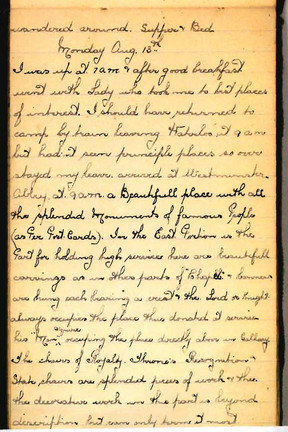 wandered around. Supper & Bed
Monday Aug. 13th
I was up at 7 am & after good breakfast
went with Lady who took me to best places
of interest. I should have returned to
camp by train leaving Waterloo at 9 am
but hadn't seen principle places so over
stayed my leave arrived at Westminster
Abbey at 9 am a Beautifull place with all
the splendid Monuments of famous Peoples
(as Per Post Cards). In the East Portion is the
Part for holding high services here are beautifull
carvings as in others parts of Chapel & banners
are hung each bearing a crest & the Lord or Knight
always occupies the place thus donated at service
his "Man" squire occupying the place directly above in Gallery
The chairs of Royalty. Throne's Resignation &
State chairs are splendid pieces of work & the
the decorative work in this part is beyond
description but can only term it most